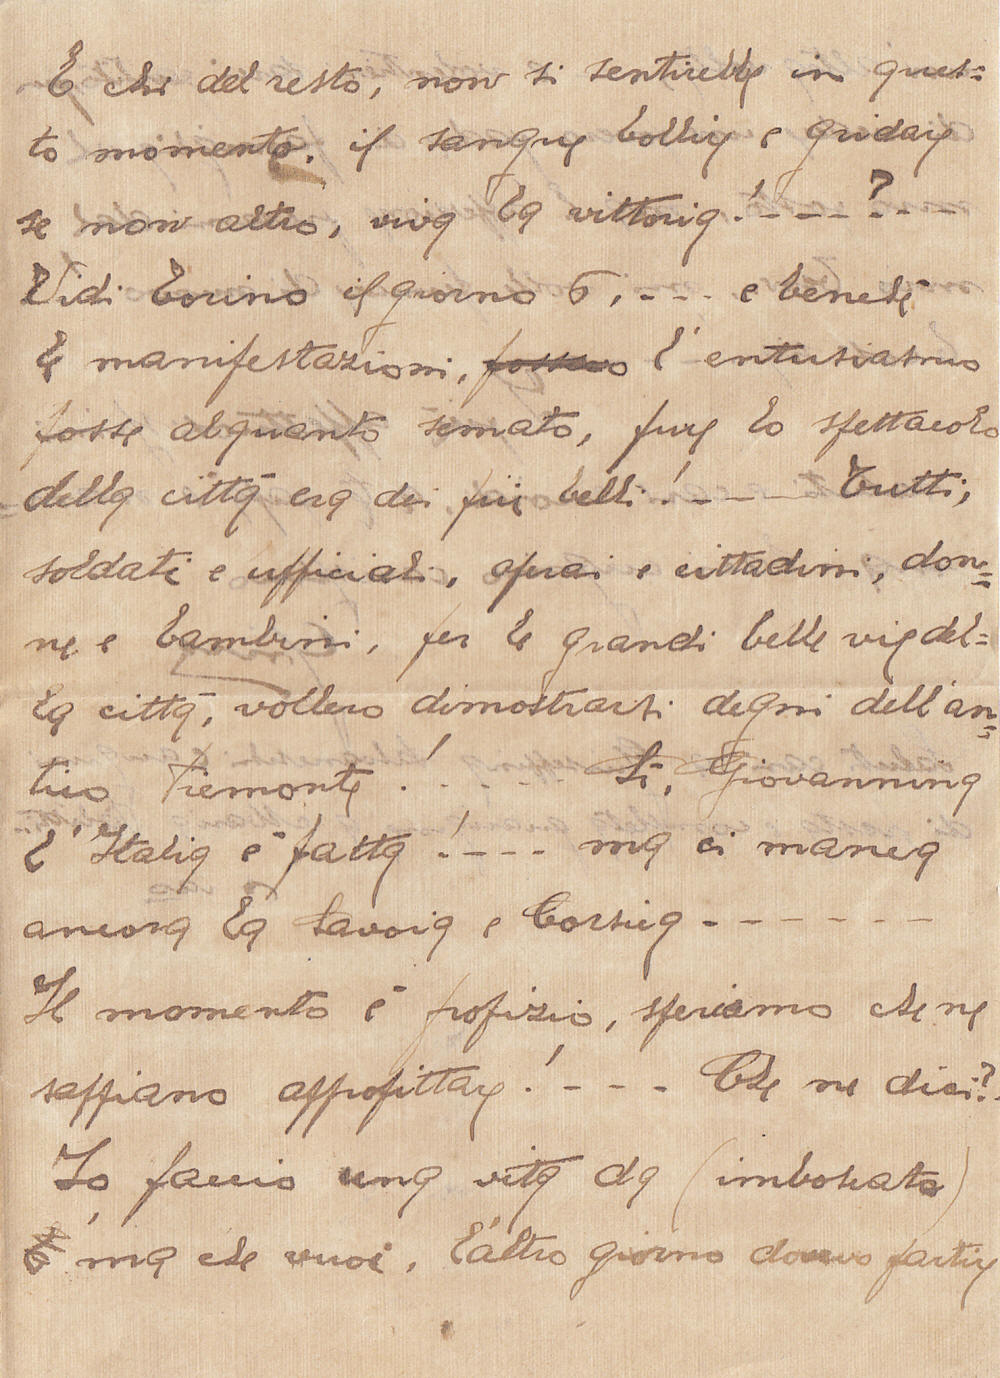 E chi del resto, non si sentirebbe in ques=
to momento. il sangue bollire e gridare
se non altro, viva la vittoria!----?---
Vidi Torino il giorno 6, --- e benchè
le manifestazioni, fossero l'entusiasmo
fosse alquanto scemato, pure lo spettacolo
della città era dei più belli!---- Tutti,
soldati e ufficiali, operai e cittadini, don=
ne e bambini, per le grandi belle vie del=
la città, vollero dimostrarsi degni dell'an=
tico Piemonte!---- Sì, Giovannina
l'Italia è fatta!---- ma ci manca
ancora la Savoia e Corsica -------
Il momento è propizio, speriamo che ne
sappiano approfittare!---- Che ne dici?
Io faccio una vita da (imboscato)
ma che vuoi, l'altro giorno dovevo partire